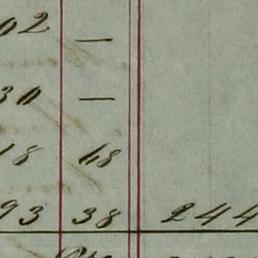 02 —
30 —
18 48
93 38 244